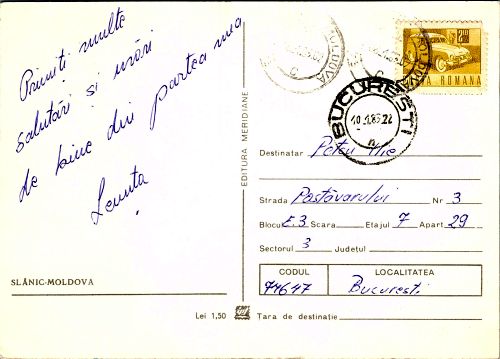 Primiți multe
salutări și urări
de bine din partea mea
Lenuța
SLĂNIC-MOLDOVA
Lei 1,50
EDITURA MERIDIANE
MOLDOVA
C
MOLDOVA
C
2,10
POSTA ROMANA
BUCURESTI
Destinatar Potcu Ilie
Strada Postăvarului Nr 3
Blocul E3 Scara Etajul 7 Apart 29
Sectorul 3 Judetul
CODUL LOCALITATEA
74647 Bucuresti
Tara de destinatie